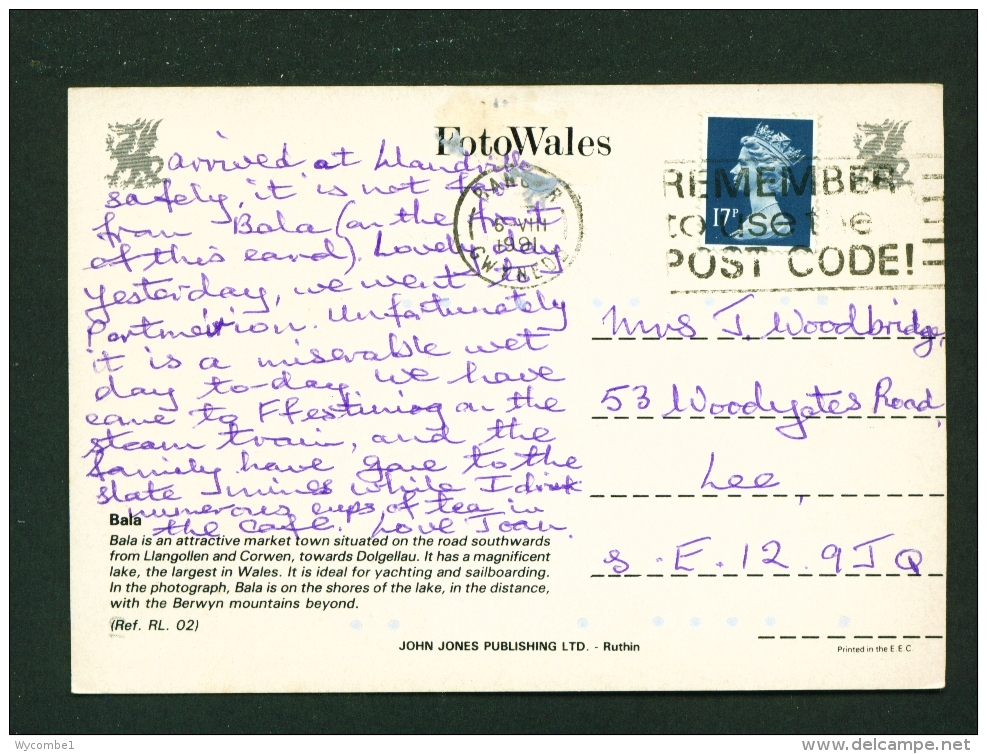 FotoWales
arrived at
safely, it is not far
from Bala (on the front
of this card). Lovely day
yesterday, we went
Portmeirion. Unfortunately
it is a miserable wet
day to-day, we have
came to Ffestiniog on the
steam train, and the
family have gone to the
slate mines while I drink
numerous cups of tea in
the cafe. Love Joan.
BANGOR
6 VIII
1991
GWYNEDD
17P
REMEMBER
to use the
POST CODE!
Mrs J. Woodbridge,
53 Woodyates Road,
Lee,
S.E.12.9JQ
Bala
Bala is an attractive market town situated on the road southwards
from Llangollen and Corwen, towards Dolgellau. It has a magnificent
lake, the largest in Wales. It is ideal for yachting and sailboarding.
In the photograph, Bala is on the shores of the lake, in the distance,
with the Berwyn mountains beyond.
(Ref. RL. 02)
JOHN JONES PUBLISHING LTD. - Ruthin
Printed in the E.E.C.
Wycombe1
www.delcampe.net